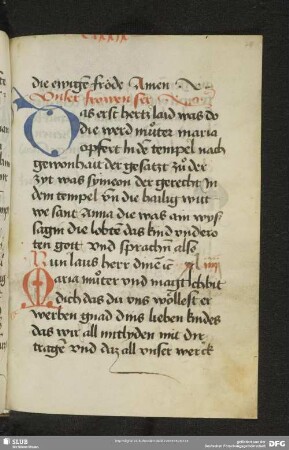 die ewigē fröde Amen
Vnser frowen
Das erst hertz laid was do
die werd můter maria
opfert in dē tempel nach
gewonhait der gesatzt zů der
zyt was symeon der gerecht in
dem tempel vn̄ die hailig wit
we sant Anna die was ain wyſ
sagin die lobtē das kind vndero
ten gott vnd sprachn̄ alſo
Nun laus herr dinē
Maria můter vnd magt ich bit
dich das du vns wöllest er
werben gnad dins lieben kindes
das wir all mitlyden mit dir
tragen vnd daz all vnser werck
SLUB
DFG